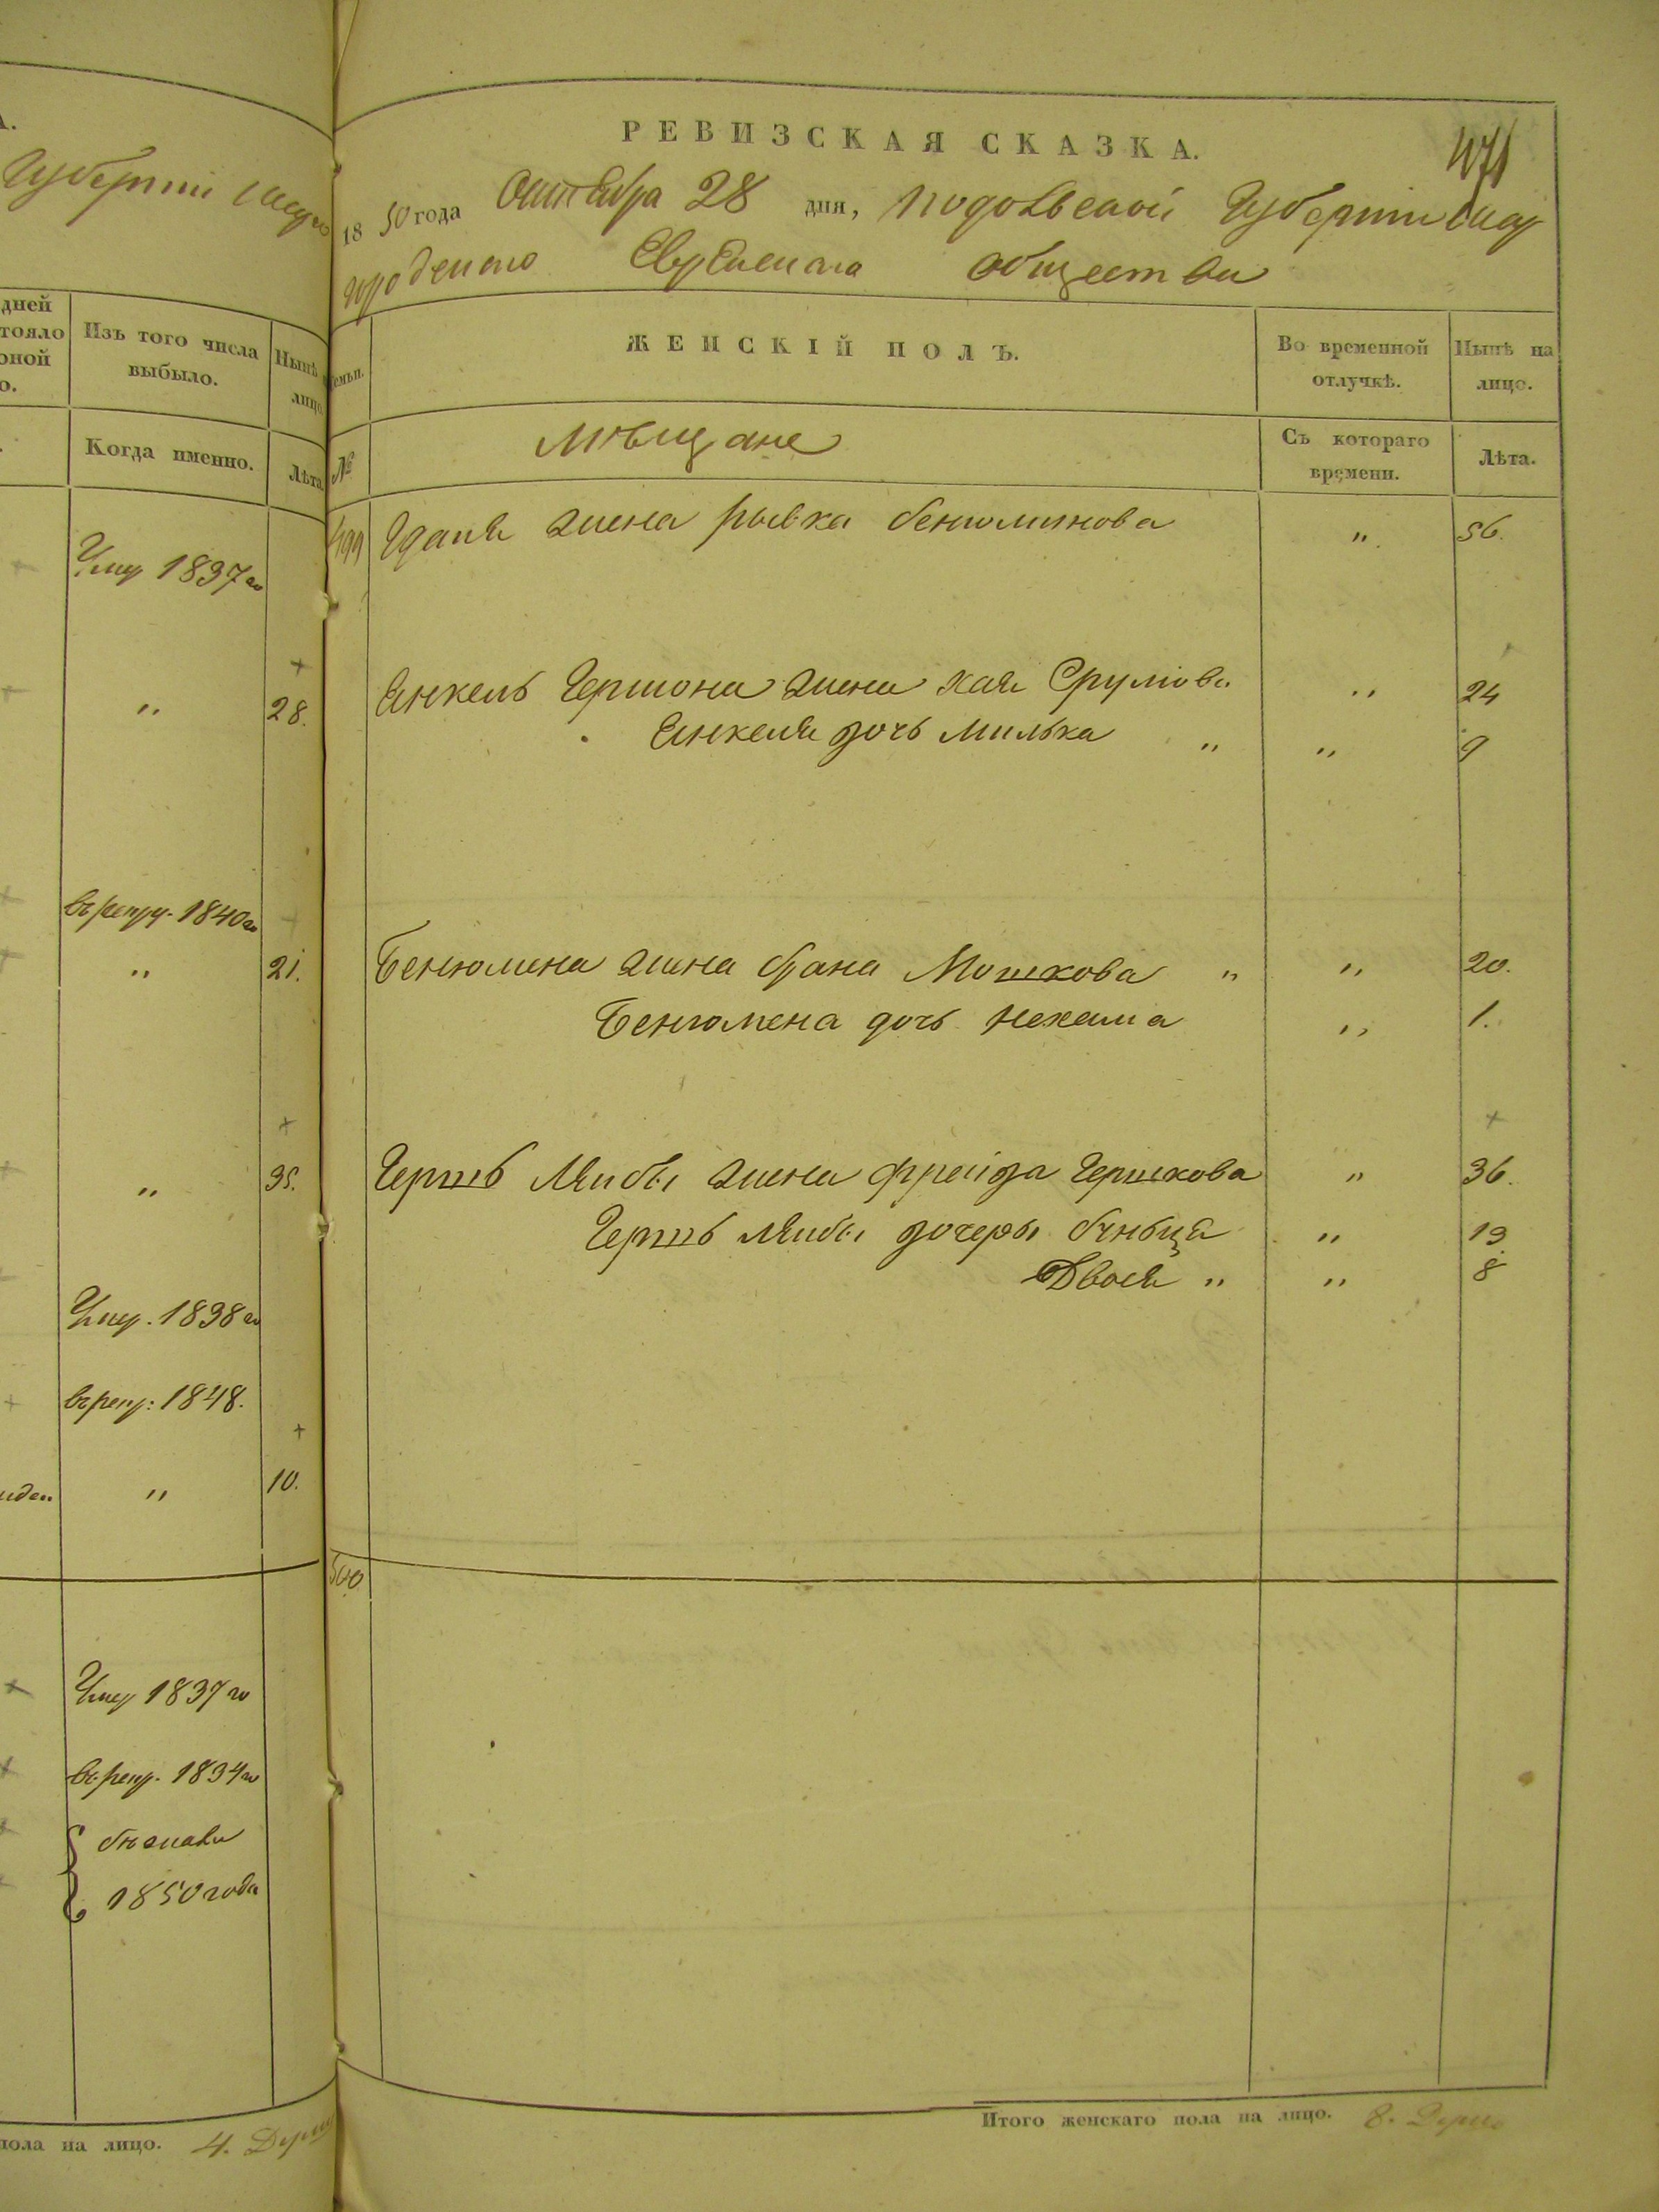 А.
Губерніи Шар
дней
тояло
оной
о.
Изъ того числа
выбыло.
Нынѣ
лицо.
Когда именно.
Лѣта.
Умер 1837 го
"
28.
въ рекру. 1840 го
"
21.
"
35.
Умер. 1838 го
въ рекр: 1848.
"
10.
Умер 1837 го
въ рекр. 1834 го
бѣжали
1850 года
пола на лицо. 4.
РЕВИЗСКАЯ СКАЗКА.
471
1850 года Октября 28 дня, Подольской Губерніи Шар
городскаго Еврейскаго общества
семьи.
ЖЕНСКІЙ ПОЛЪ.
Во временной
отлучкѣ.
Нынѣ на
лицо.
№
Мѣщане
Съ котораго
времени.
Лѣта.
499 Іданя жена рывка бенюминова " 56.
Янкель Гершона жена хая Срулова " 24
Янкеля дочь милька " " 9
Бенюмена жена брана Мошкова " " 20.
Бенюмена дочь нехама " 1.
Гершъ Лейбы жена фрейда Гершкова " 36.
Гершъ Лейбы дочеры быньца " 13.
Двося " " 8
500
Итого женскаго пола на лицо. 8.